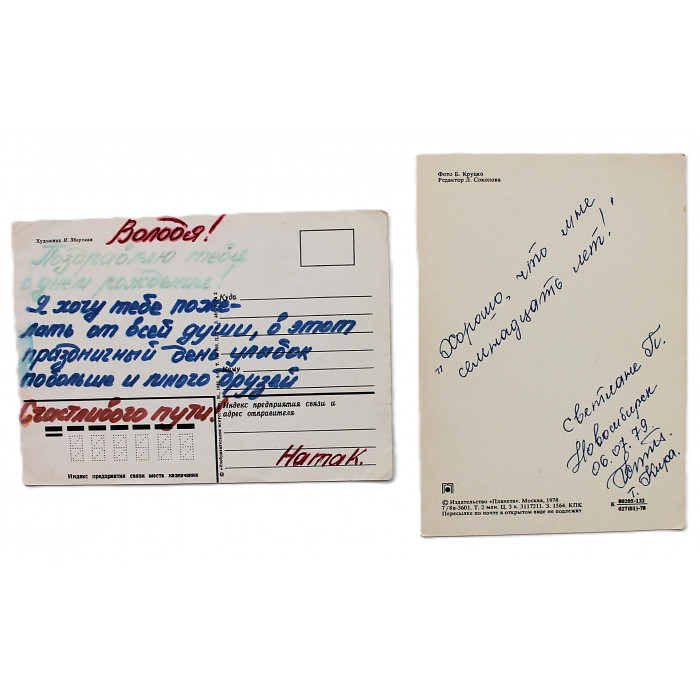 Художник И. Збарская
Володя!
Поздравляю тебя
с днем рождения
Я хочу тебе поже-
лать от всей души, в этот
праздничный день улыбок
побольше и много друзей
Счастливого пути!
Куда
Кому
Индекс предприятия связи и
адрес отправителя
Ната К.
Индекс предприятия связи места назначения
Фото Б. Круцко
Редактор Л. Соколова
"Хорошо, что мне
семнадцать лет!"
Светлане П.
Новосибирск
06.07.79
т. Кира.
© Издательство «Планета». Москва, 1978
7/8в-3601. Т. 2 млн. Ц. 3 к. 3117211. З. 1564. КПК
Пересылке по почте в открытом виде не подлежит
К 80205-132
027(01)-78